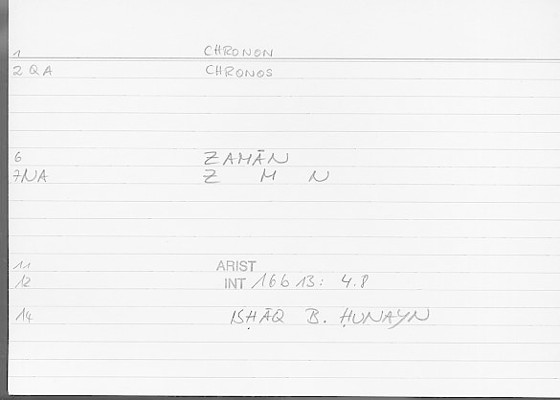 1 CHRONON
2 QA CHRONOS
6 ZAMĀN
7NA Z M N
11 ARIST
12 INT 16b13: 4.8
14 ISḤĀQ B. ḤUNAYN